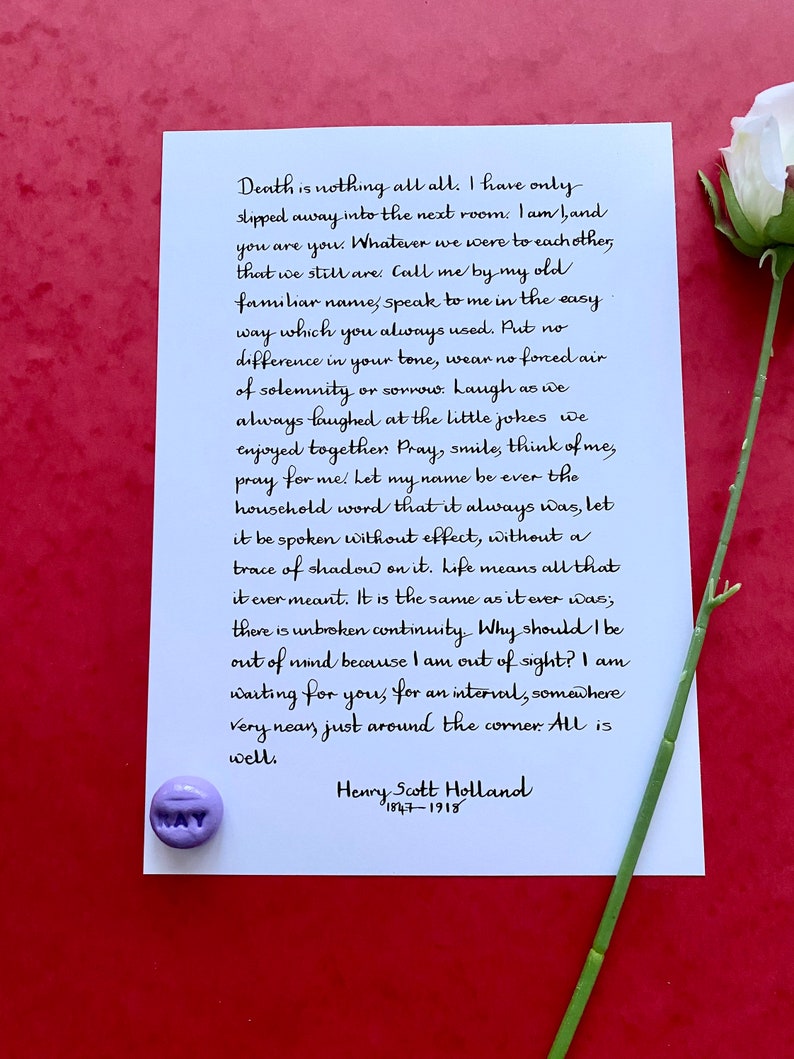 Death is nothing all all. I have only
slipped away into the next room. I am I, and
you are you. Whatever we were to each other,
that we still are. Call me by my old
familiar name, speak to me in the easy
way which you always used. Put no
difference in your tone, wear no forced air
of solemnity or sorrow. Laugh as we
always laughed at the little jokes we
enjoyed together. Pray, smile, think of me,
pray for me. Let my name be ever the
household word that it always was, let
it be spoken without effect, without a
trace of shadow on it. Life means all that
it ever meant. It is the same as it ever was;
there is unbroken continuity. Why should I be
out of mind because I am out of sight? I am
waiting for you, for an interval, somewhere
very near, just around the corner. All is
well.
Henry Scott Holland
1847-1918
KAY